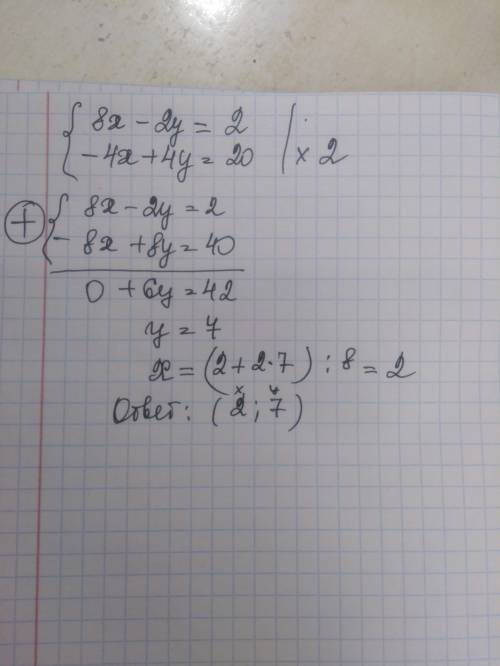 8x - 2y = 2
-4x + 4y = 20 | × 2
+ 8x - 2y = 2
- 8x + 8y = 40
0 + 6y = 42
y = 7
x = (2 + 2·7) : 8 = 2
x y
Ответ: (2; 7)